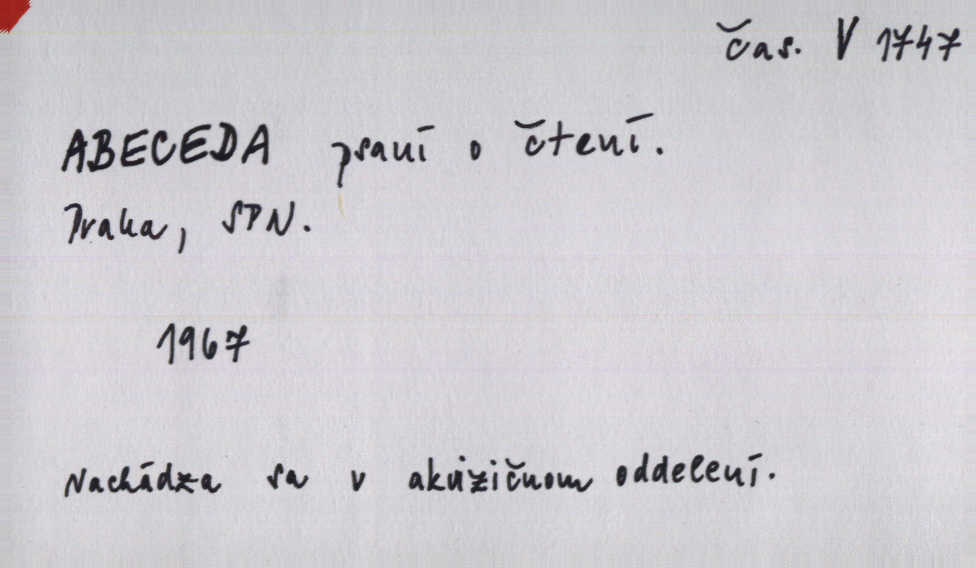 Čas. V 1747
ABECEDA psaní o čtení.
Praha, SPN.
1967
Nachádza sa v akvizičnom oddelení.